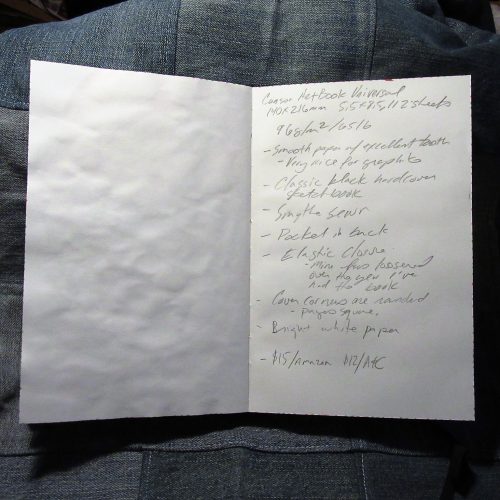 Canson ArtBook Universal
140x216mm 5.5x8.5, 112 sheets
96g/m²/65lb
- Smooth paper w/ excellent tooth
- Very nice for graphite
- Classic black hardcover
sketchbook
- Smythe sewn
- Pocket in back
- Elastic closure
- Mine has loosened
over the year I've
had the book
- Cover corners are rounded
- pages square.
- Bright white paper
- $15/Amazon $12/A+C